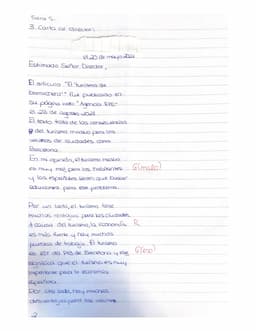 Serie 5.
3. Carta al director.
el 20 de mayo 2021
Estimado Señor Director,
El artículo "El turismo de
Borrachera" fue publicado en
su página web "Agencia EFE"
el 28 de agosto 2021.
El texto trata de las consecuencias
del turismo masivo para los
vecinos de ciudades como
Barcelona.
En mi opinión, el turismo masivo
es muy mal para los habitantes G(malo)
y los españoles tienen que buscar
soluciones para este problema.
Por un lado, el turismo tiene
muchas ventajas para las ciudades.
A causa del turismo, la economía R
es más fuerte y hay muchos
puestos de trabajo. El turismo
es del PIB de Barcelona y eso G(eso)
significa que el turismo es muy
importante para la economía
española.
Por otro lado, hay muchas
desventajas para los vecinos
2